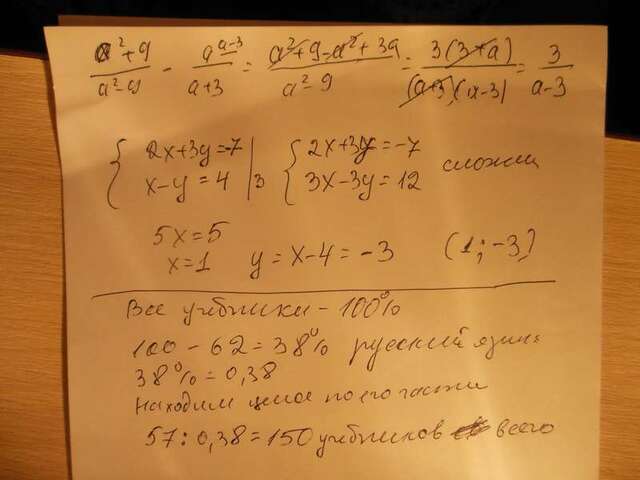 a²+9/a²-9 - a^(a-3)/a+3 = a²+9-a²+3a/a²-9 = 3(3+a)/(a+3)(a-3) = 3/a-3
{2x+3y=-7 | {2x+3y=-7
x-y=4 |3 3x-3y=12 сложим
5x=5
x=1 y=x-4=-3 (1;-3)
Все учебники - 100%
100-62=38% русский язык
38%=0,38
Находим целое по его части
57:0,38=150 учебников всего